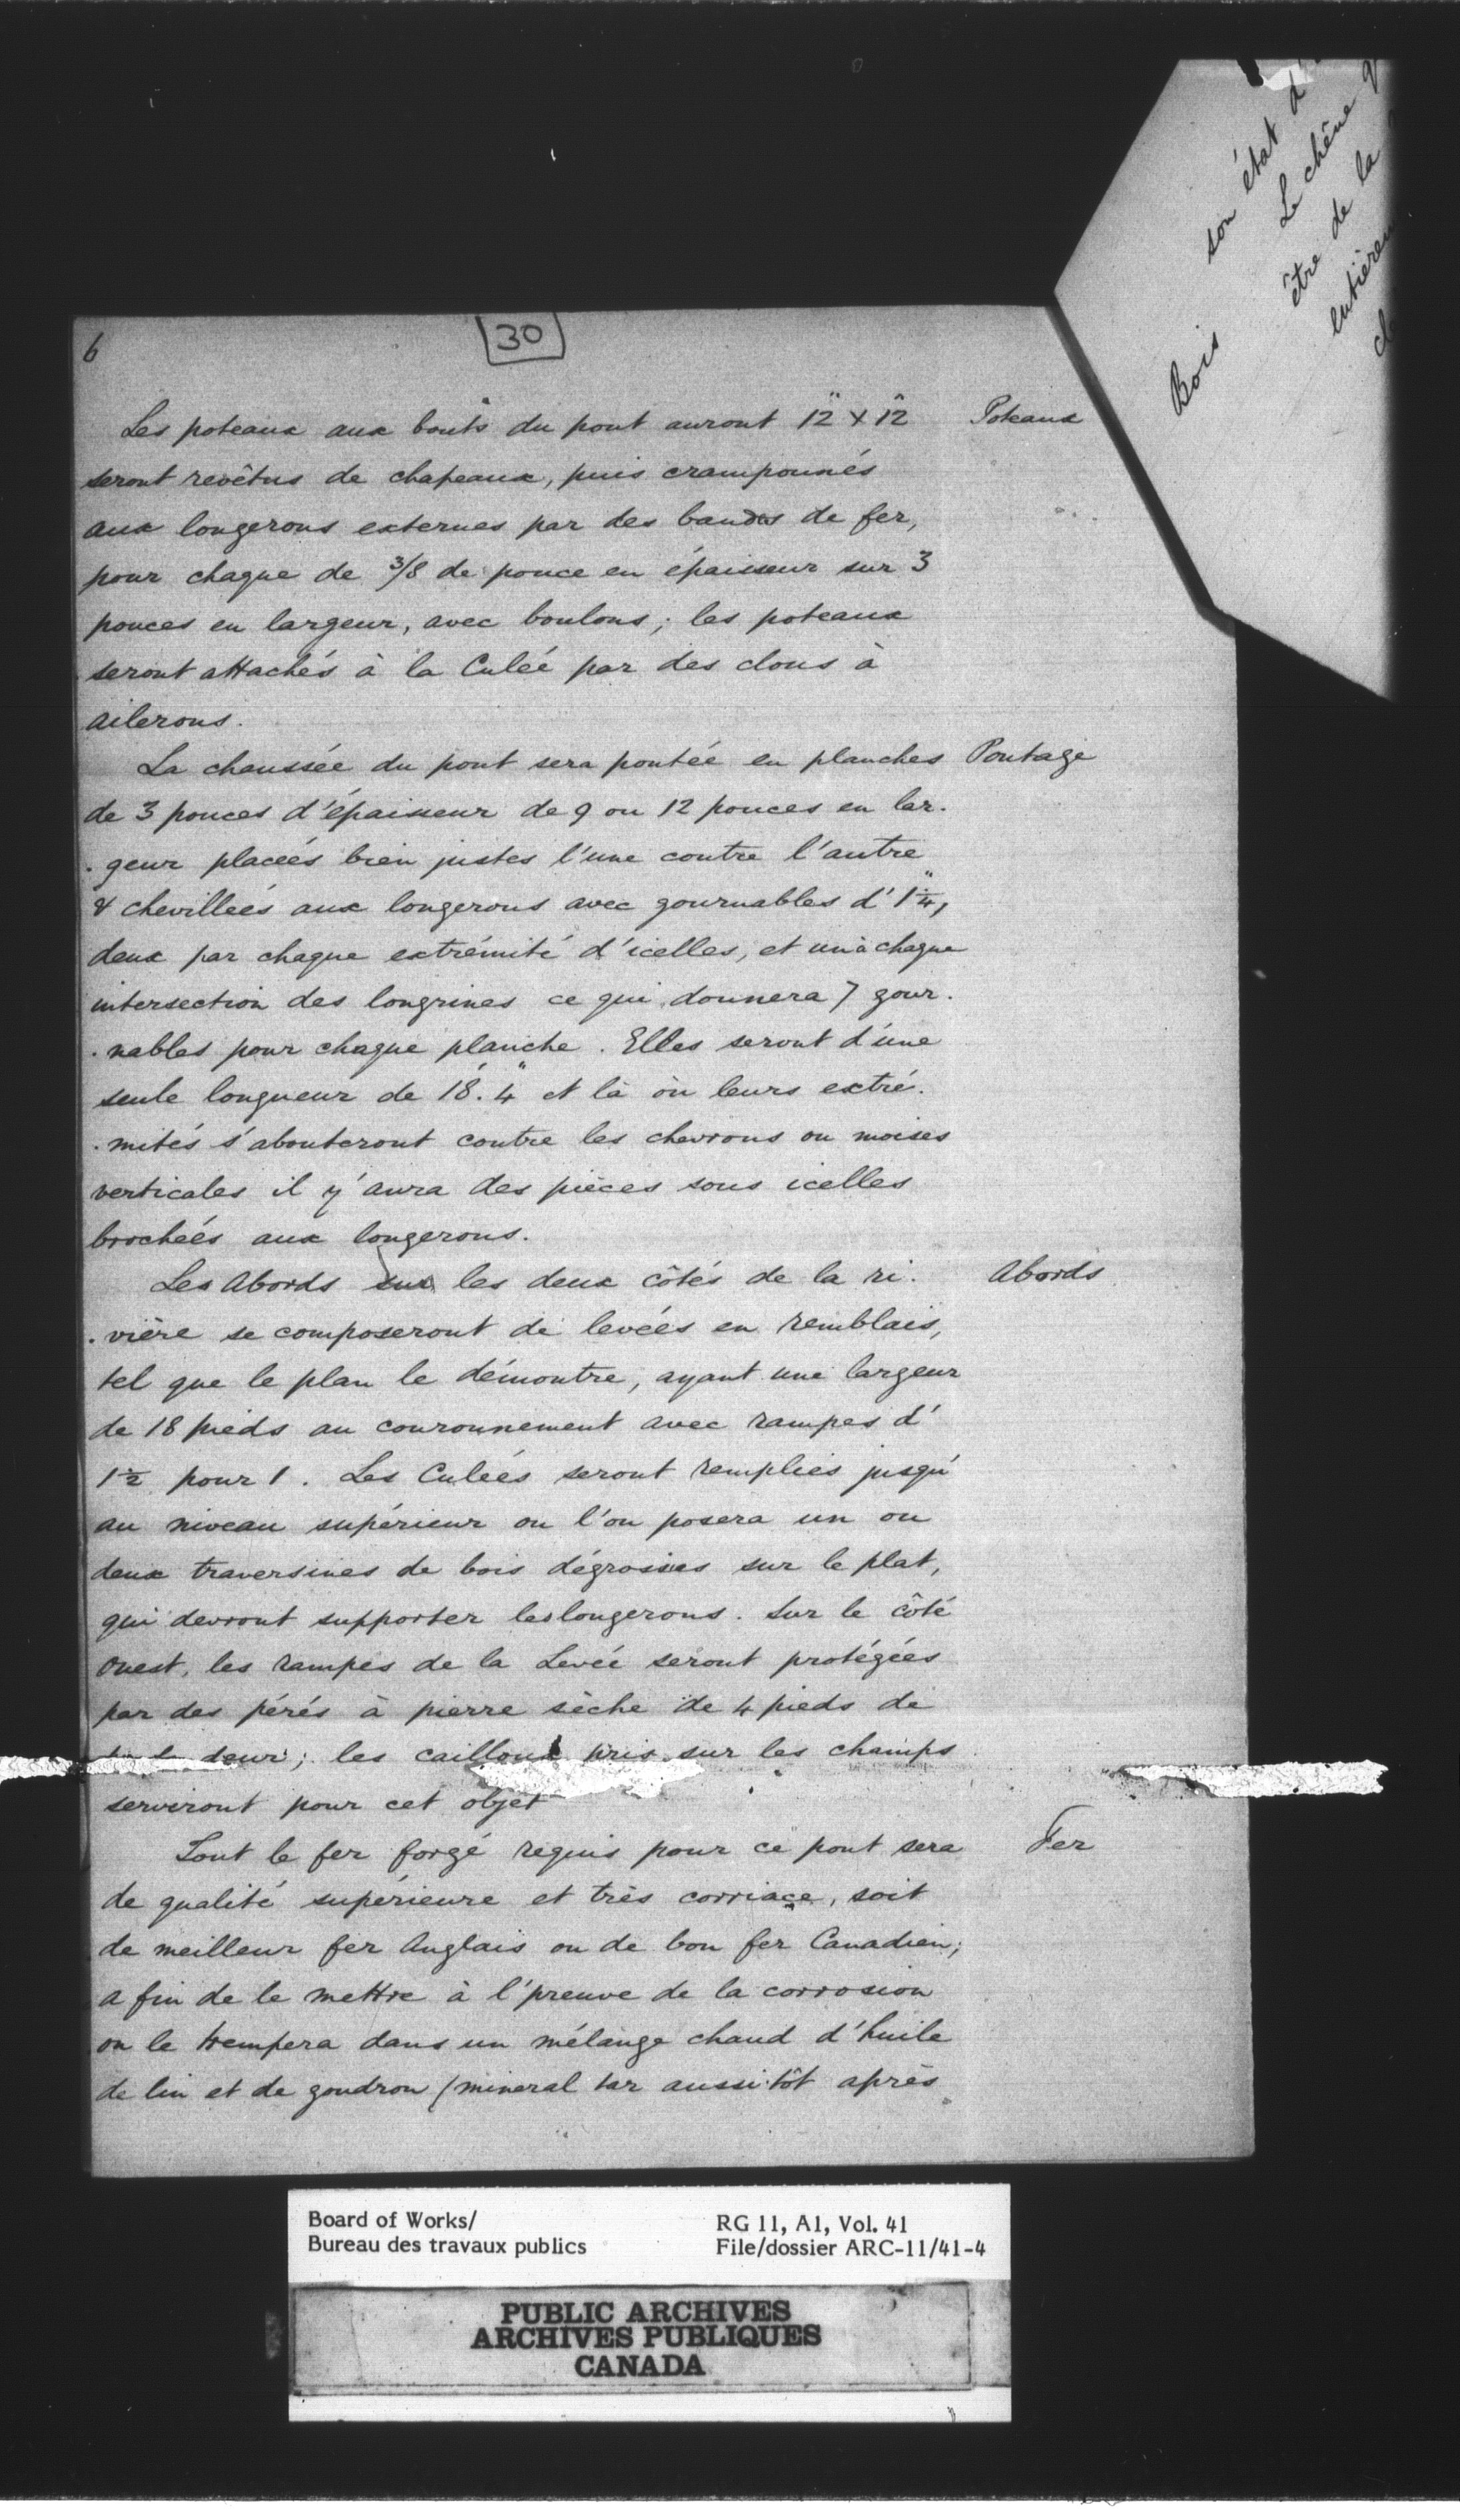 6
30
Les poteaux aux bouts du pont auront 12" X 12" Poteaux
seront revêtus de chapeaux, puis cramponnés
aux longerons externes par des bandes de fer,
pour chaque de 3/8 de pouce en épaisseur sur 3
pouces en largeur, avec boulons; les poteaux
seront attachés à la Culée par des clous à
ailerons.
La chaussée du pont sera pontée en planches Pontage
de 3 pouces d'épaisseur de 9 ou 12 pouces en lar.
. geur placées bien justes l'une contre l'autre
& chevillées aux longerons avec gournables d'1¼",
deux par chaque extrémité d'icelles, et un à chaque
intersection des longrines ce qui donnera 7 gour.
. nables pour chaque planche. Elles seront d'une
seule longueur de 18'. 4" et là où leurs extré.
. mités s'abouteront contre les chevrons ou moises
verticales il y'aura des pièces sous icelles
brochées aux longerons.
Les Abords sur les deux côtés de la ri. Abords
. vière se composeront de levées en remblais,
tel que le plan le démontre, ayant une largeur
de 18 pieds au couronnement avec rampes d'
1½ pour 1. Les Culées seront remplies jusqu'
au niveau supérieur ou l'on posera un ou
deux traversines de bois dégrossies sur le plat,
qui devront supporter les longerons. Sur le côté
Ouest, les rampes de la Levée seront protégées
par des pérés à pierre sèche de 4 pieds de
deur; les cailloux pris sur les champs
serviront pour cet objet
Tout le fer forgé requis pour ce pont sera Fer
de qualité supérieure et très corriace, soit
de meilleur fer Anglais ou de bon fer Canadien;
a fin de le mettre à l'preuve de la corrosion
on le trempera dans un mélange chaud d'huile
de lin et de goudron (mineral tar aussitôt après
Bois
son état d'
Le chêne q
être de la
entièrem
Board of Works/
Bureau des travaux publics
RG 11, A1, Vol. 41
File/dossier ARC-11/41-4
PUBLIC ARCHIVES
ARCHIVES PUBLIQUES
CANADA